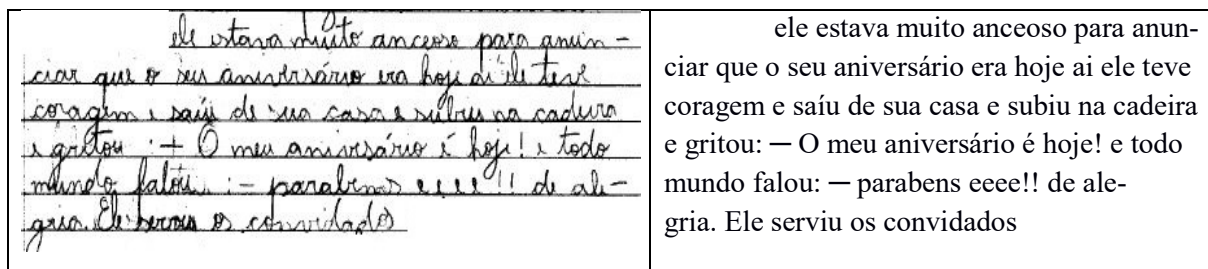 ele estava muito anceoso para anun-
ciar que o seu aniversário era hoje ai ele teve
coragem e saíu de sua casa e subiu na cadeira
e gritou :— O meu aniversário é hoje! e todo
mundo falou :— parabens eeee!! de ale-
gria. Ele serviu os convidados
ele estava muito anceoso para anun-
ciar que o seu aniversário era hoje ai ele teve
coragem e saíu de sua casa e subiu na cadeira
e gritou: — O meu aniversário é hoje! e todo
mundo falou: — parabens eeee!! de ale-
gria. Ele serviu os convidados